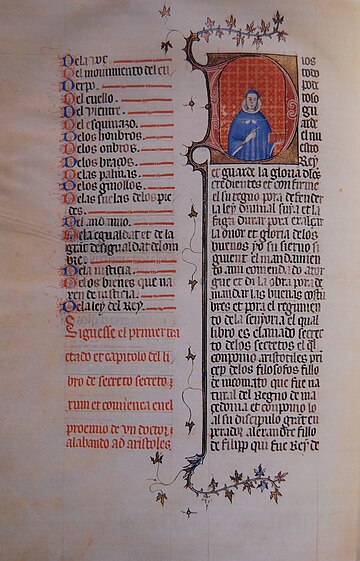 Dela voç
Del mouimiento del cu
erpo
Del cuello
Del vientre
Del esquinazo
Delos honbros
Delos onbros
Delos braços
Delas palmas
Delos ginollos
Delas suelas delos pie
des
Del andamio
Dela egualdat et dela
grat desigualdat delom
bre
Dela iusticia
Delos bienes que na
xen de iusticia
Dela ley del Rey
Siguesse el primer tra
ctado et capitolo del li
bro de secreto secreto
rum et comiença en el
prohemio de vn doctor
alabando ad aristotiles
Dios
todo
pode
roso
gu
arde
el nu
estro
Rey
et guarde la gloria delos
credientes et conferme
el su regno pora defender
la ley diuinal suya et la
faga durar pora exalçar
la onor et gloria delos
buenos yo su sieruo si
guient el mandamien
do ami comendado ator
gue et di la obra por de
mandar las buenas costu
bres et por el regimien
to dela senyoria el qual
libro es clamado secre
to delos secretos el ql
conpuso aristotiles prin
cep delos filosofos fillo
de nicomaco que fue na
tural del Regno de ma
cedonia et conpuso lo
al su discipulo grat en
perador alexandre fillo
de filipp qui fue Rey de